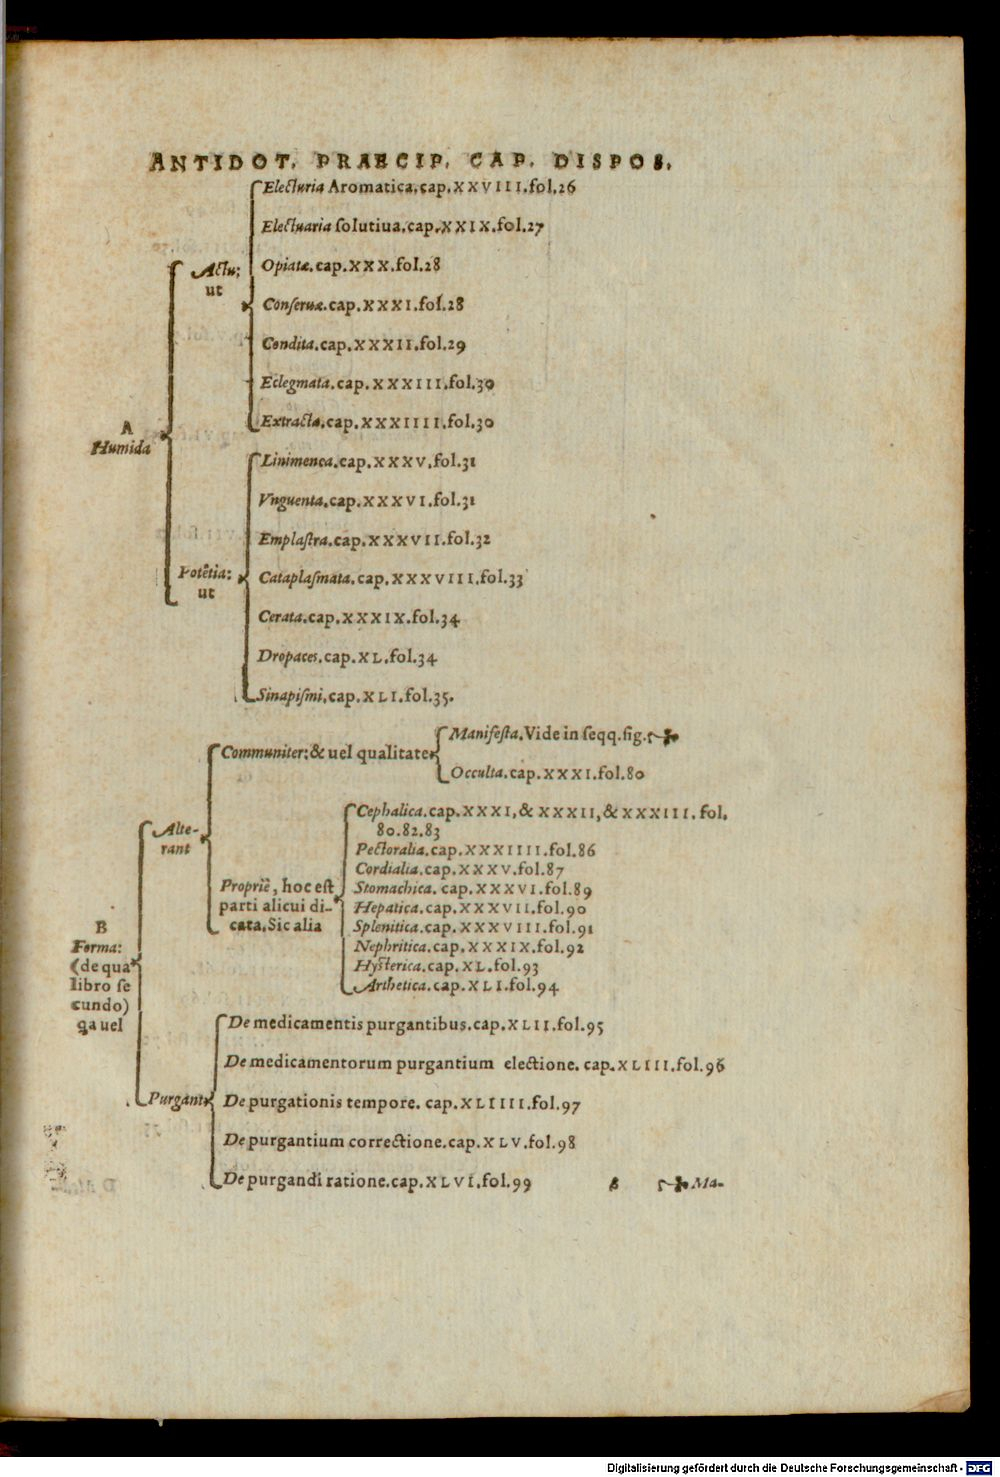 ANTIDOT. PRAECIP. CAP. DISPOS.
Electuria Aromatica. cap. XXVIII. fol. 26
Electuaria solutiua. cap. XXIX. fol. 27
Opiatæ. cap. XXX. fol. 28
Actu;
ut
Conseruæ. cap. XXXI. fol. 28
Condita. cap. XXXII. fol. 29
Eclegmata. cap. XXXIII. fol. 30
Extracta. cap. XXXIIII. fol. 30
A
Humida
Linimenta. cap. XXXV. fol. 31
Vnguenta. cap. XXXVI. fol. 31
Emplastra. cap. XXXVII. fol. 32
Potētia:
ut
Cataplasmata. cap. XXXVIII. fol. 33
Cerata. cap. XXXIX. fol. 34
Dropaces. cap. XL. fol. 34
Sinapismi. cap. XLI. fol. 35.
Manifesta. Vide in seqq. sig.
Communiter: & uel qualitate
Occulta. cap. XXXI. fol. 80
Cephalica. cap. XXXI, & XXXII, & XXXIII. fol.
80. 82. 83
Alte-
rant
Pectoralia. cap. XXXIIII. fol. 86
Cordialia. cap. XXXV. fol. 87
Propriè, hoc est
parti alicui di-
cata. Sic alia
Stomachica. cap. XXXVI. fol. 89
Hepatica. cap. XXXVII. fol. 90
Splenitica. cap. XXXVIII. fol. 91
Nephritica. cap. XXXIX. fol. 92
Hysterica. cap. XL. fol. 93
Arthetica. cap. XLI. fol. 94
B
Forma:
(de qua
libro se
cundo)
ꝗa uel
De medicamentis purgantibus. cap. XLII. fol. 95
De medicamentorum purgantium electione. cap. XLIII. fol. 96
Purgant
De purgationis tempore. cap. XLIIII. fol. 97
De purgantium correctione. cap. XLV. fol. 98
De purgandi ratione. cap. XLVI. fol. 99
β Ma-
Digitalisierung gefördert durch die Deutsche Forschungsgemeinschaft - DFG